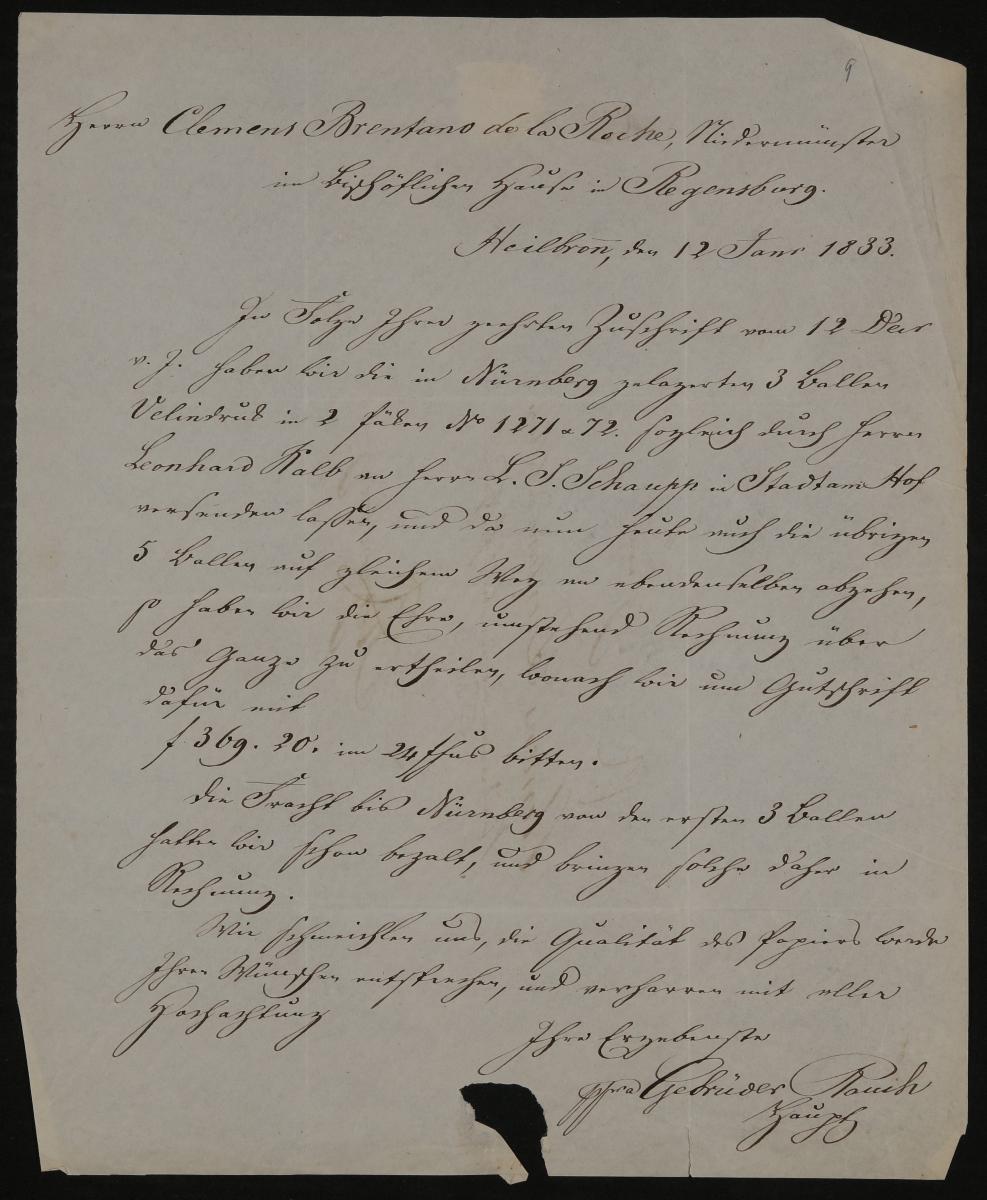 9
Herrn Clemens Brentano de la Roche, Niedermünster
im Bischöflichen Hause in Regensburg.
Heilbron̄, den 12 Janr 1833.
In Folge Ihrer geehrten Zuschrift vom 12 Decr
v. J. haben wir die in Nürnberg gelagerten 3 Ballen
Velindruk in 2 Fäßen No 1271 & 72. sogleich durch Herrn
Leonhard Kalb an Herrn L. J. Schaupp in Stadtam Hof
versenden lassen, und da nun heute auch die übrigen
5 Ballen auf gleichem Weg an ebendenselben abgehen,
so haben wir die Ehre, umstehend Rechnung über
das Ganze zu ertheilen, wonach wir um Gutschrift
dafür mit
f 369. 20. im 24 ffus bitten.
Die Fracht bis Nürnberg von den ersten 3 Ballen
hatten wir schon bezalt, und bringen solche daher in
Rechnung.
Wir schmeichlen uns, die Qualität des Papiers werde
Ihren Wünschen entsprechen, und verharren mit aller
Hochachtung
Ihre Ergebenste
ppra Gebrüder Rauch
Haupt